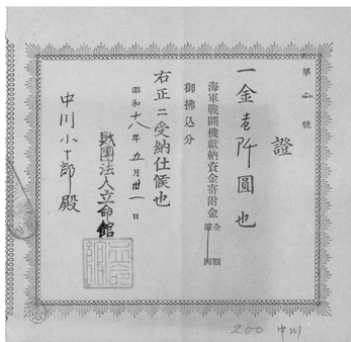 證
第 號
一金壱阡圓也
海軍戰鬪機獻納資金寄附金
御拂込分
右正ニ受納仕候也
昭和十八年五月卅一日
財團法人立命館
中川小十郎殿
200 中川